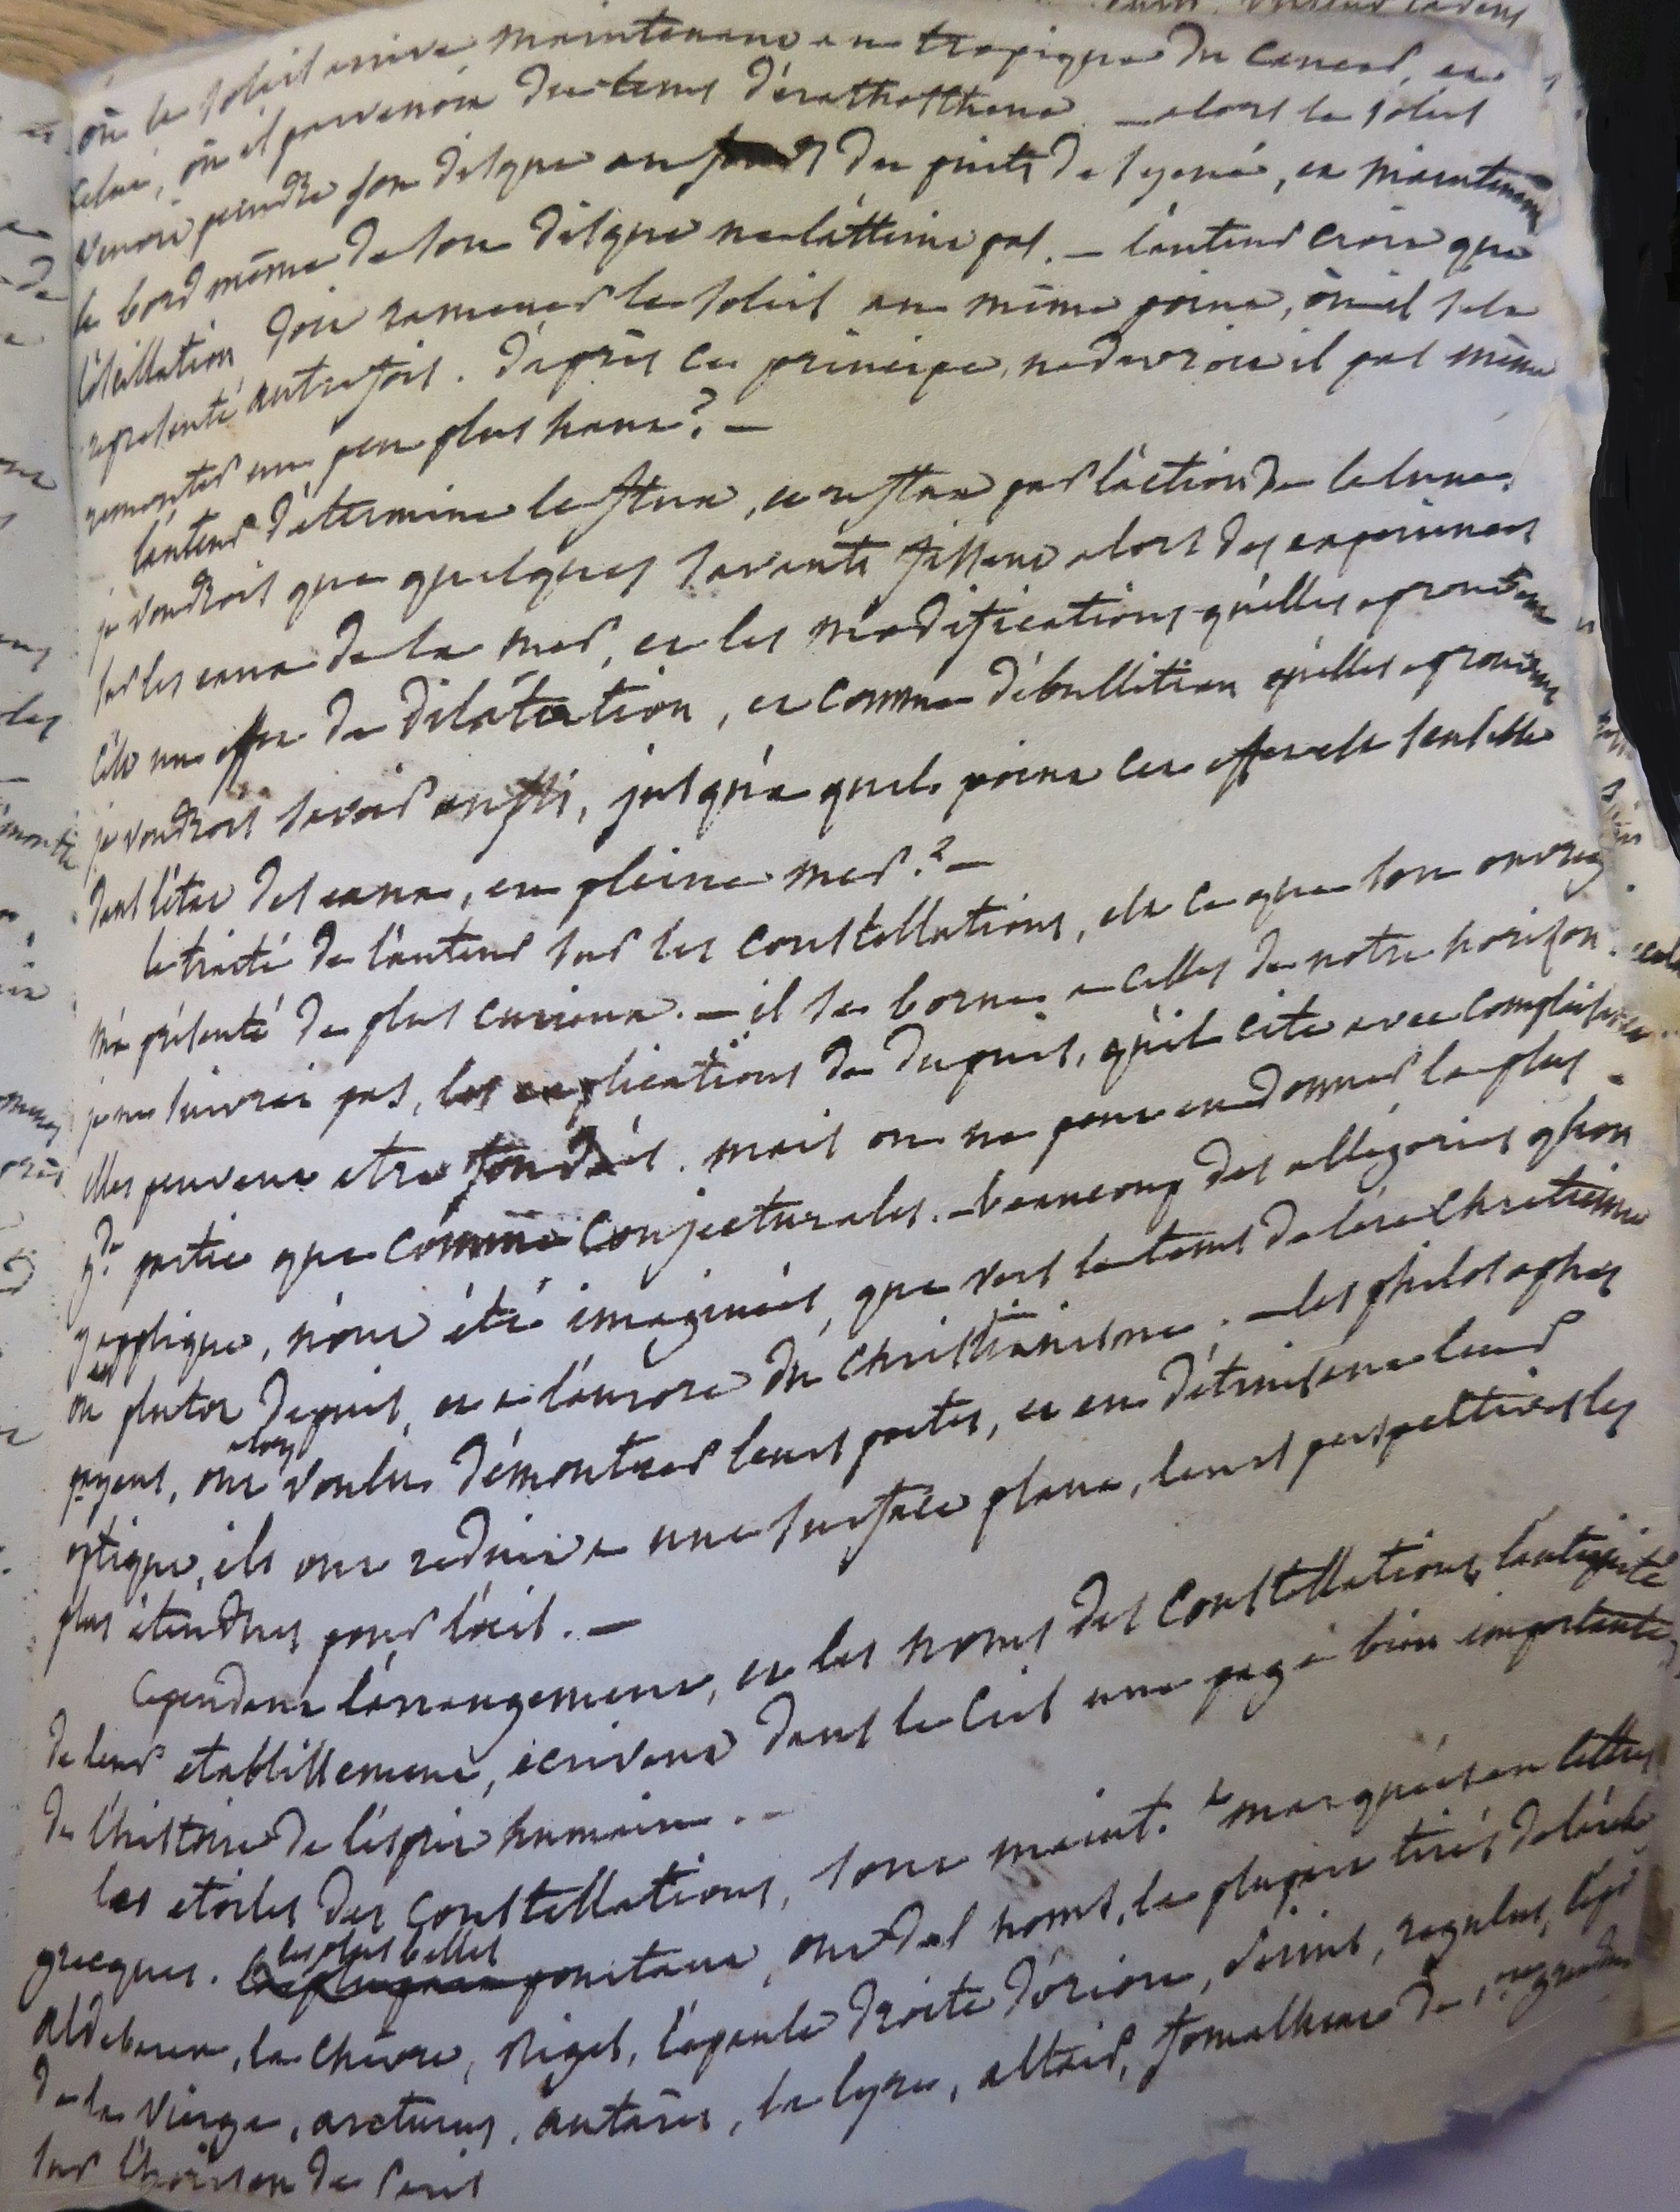 où le soleil arrive maintenant au tropique du cancer, et
celui, où il parvenoit du tems d'érathosthene. — alors le soleil
venoit peindre son disque au fond du puits de syené, et maintenant
le bord même de son disque ne l'atteint pas. — l'auteur croit que
l'oscillation doit ramener le soleil au même point, où il s'est
représenté autrefois. d'après ce principe, ne devroit il pas même
remonter un peu plus haut? —
l'auteur détermine le flux, et reflux par l'action de la lune.
je voudrois que quelques savants fissent alors des expériences
sur les eaux de la mer, et les modifications qu'elles eprouvent
c'est un effet de dilatation, et comme d'ébullition qu'elles eprouvent
je voudrois savoir aussi, jusqu'à quel point cet effet est sensible
dans l'état des eaux, en pleine mer? —
le traité de l'auteur sur les constellations, est ce que son ouvrage
m'a présenté de plus curieux. — il se borne a celles de notre horison.
je ne suivrai pas, les explications de dupuis, qu'il cite avec complaisance
elles peuvent etre fondées. mais on ne peut en donner la plus
gde. partie que comme conjecturales. — beaucoup des allégories qu'on
y applique, n'ont été imaginées, que vers le tems de l'ére chretienne
ou plutor depuis, et a l'aurore du christianisme. — les philosophes
payens, ont alors voulu démontrer leurs poetes, et en détruisant leur
optique, ils ont reduit a une surface plane, leurs perspectives les
plus étendues pour l'œil. —
Cependant l'arrangement, et les noms des constellations, l'antiquité
de leur etablissement, écrivent dans le ciel une page bien importante
de l'histoire de l'esprit humain. —
les etoiles des constellations, sont maint.t marquées en lettres
grecques. les plus belles pourtant, ont des noms, la plupart tirés de l'arabe
aldebaran, la chèvre, rigel, l'epaule droite d'orion, sirius, regulus, l'epi
de la vierge, arcturus, antarès, la lyre, altair, fomalhaut de 1.re grandeur
sur l'horison de Paris